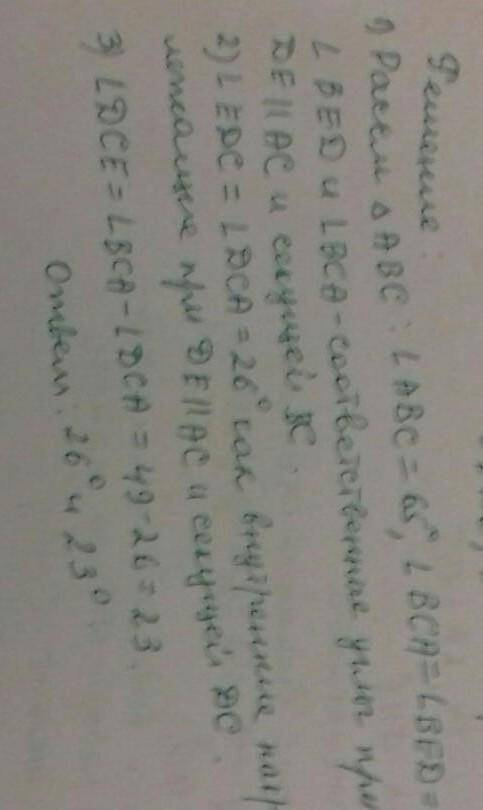 Решение:
1) Рассм △ ABC: ∠ ABC = 65°, ∠ BCA = ∠ BED =
∠ BED и ∠ BCA - соответственные углы при
DE || AC и секущей
2) ∠ EDC = ∠ DCA = 26° как внутренние накр
лежащие при DE || AC и секущей DC.
3) ∠ DCE = ∠ BCA - ∠ DCA = 49 - 26 = 23.
Ответ: 26° и 23°.